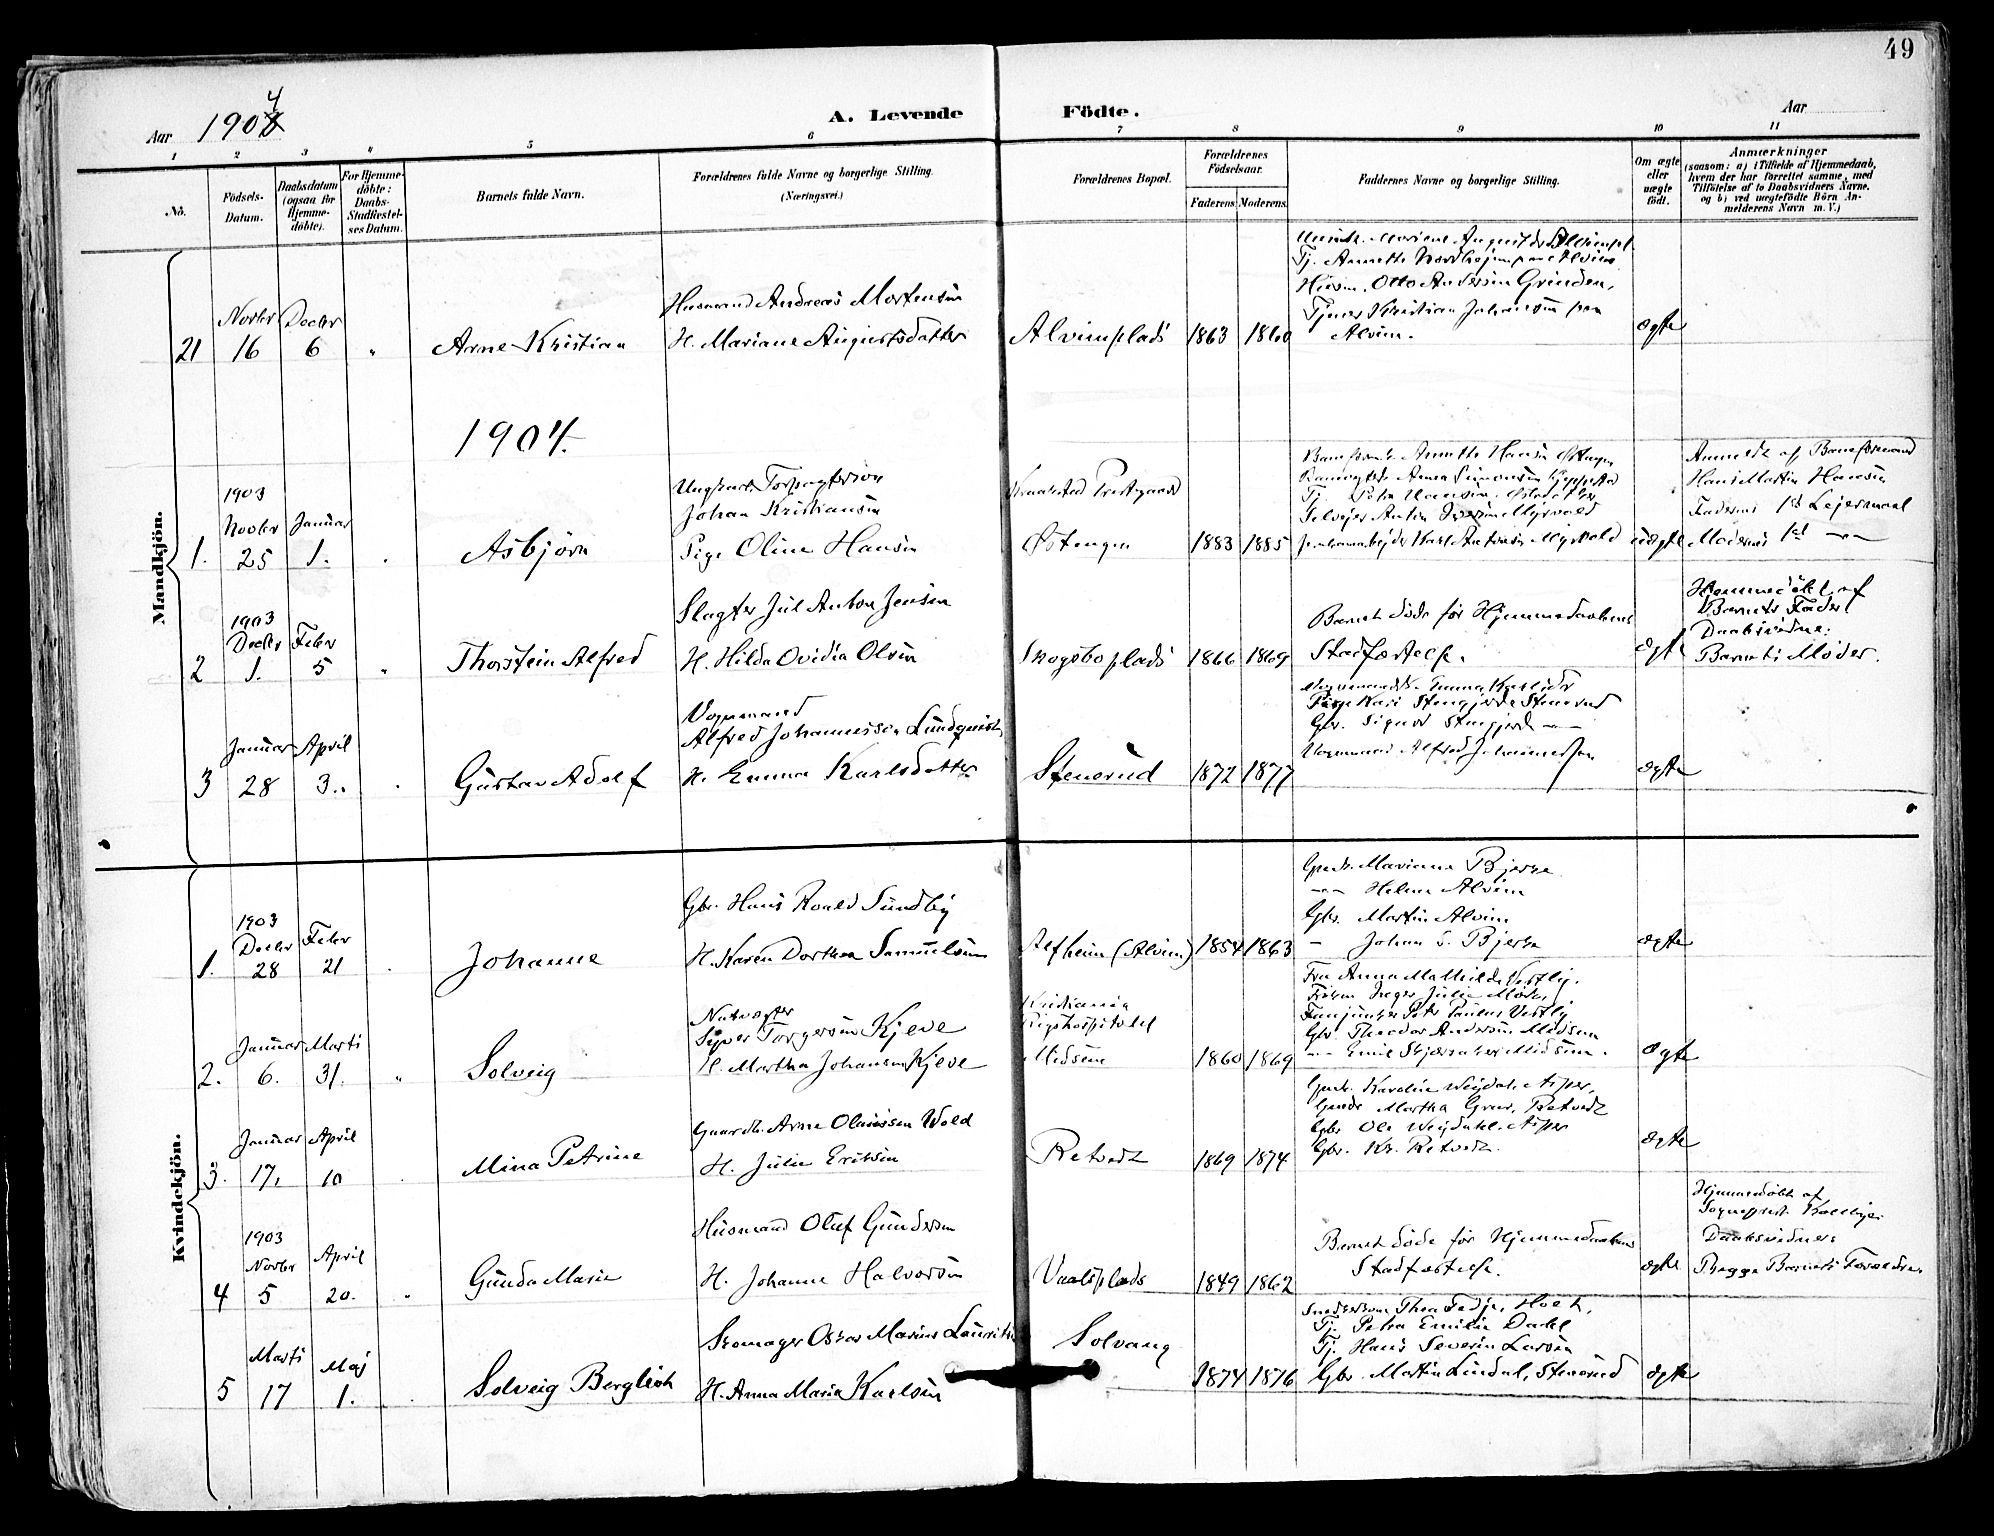 49
Aar 1904
A. Levende Födte.
Aar
1 2 3 4 5 6 7 8 9 10 11
No.
Födsels-Datum.
Daabsdatum (ogsaa for Hjemmedöbte).
For Hjemmedöbte: Daabs-Stadfæstelses Datum.
Barnets fulde Navn.
Forældrenes fulde Navne og borgerlige Stilling. (Næringsvei.)
Forældrenes Bopæl.
Forældrenes Födselsaar.
Faderens. Moderens.
Faddernes Navne og borgerlige Stilling.
Om ægte eller uægte födt.
Anmærkninger
(saasom: a) i Tilfælde af Hjemmedaab,
hvem der har forrettet samme, med
Tilföielse af to Daabsvidners Navne.
og b) ved uægtefödte Börn An-
melderens Navn m. V.)
Mandkjön.
21 Novbr 16 Decbr 6 "
Arne Kristian
Husmand Andreas Mortensen
H. Mariane Augustsdatter
Alvimplads 1863 1860
Mariane Augustdr Alvimpl.
Tj. Annette Alvim
Husm. Otto Andersen Grinden,
Tjener Kristian Johansen
Alvim.
ægte
1904.
1. 1903 Novbr 25 Januar 1. "
Asbjørn
Ungkarl Forpagtersøn
Johan Kristiansen
Pige Oline Hansen
Kraakstad Prestgaard
Østengen 1883 1885
Annette Hansen Østengen
Anna Simonsen
Tj. Petra Hansen
Selvejer Anton Iversen Myrvold
Karl Antonsen Myrvold
uægte
Anmeldt af Baneformand
Hans Martin Hansen
Faderens 1st Lejermaal
Moderens 1st —
2 1903 Decbr 1. Febr 5 "
Thorstein Alfred
Slagter Jul Anton Jensen
H. Hilda Ovidia Olsen
Skogsboplads 1866 1869
Barnet døde før Hjemmedaabens
Stadfæstelse.
ægte
Hjemmedöbt af
Barnets Fader
Daabsvidne:
Barnets Moder.
3 Januar 28 April 3. "
Gustav Adolf
Vognmand
Alfred Johannessen Lundqvist
H. Emma Karlsdatter
Stenerud 1872 1877
Emma Karlsdr
Pige Kari Stengjerde Stenerud
Gbr. Sigurd Stengjerde —
Vognmand Alfred Johannessen
ægte
Kvindekjön.
1. 1903 Decbr 28 Febr 21 "
Johanne
Gbr. Hans Roald Sundby
H. Karen Dorthea Samuelsen
Alfheim (Alvim) 1854 1863
Gbrk. Mariane Bjerke
— Helene Alvim
Gbr. Martin Alvim
— Johan S. Bjerke
ægte
2. Januar 6. Marts 31. "
Solveig
Natvægter
Siver Torgersen Kjeve
H. Martha Johansen Kjeve
Kristiania
Rigshospitalet
Midsem 1860 1869
Fru Anna Mathilde Vestly.
Frøken Inger Julie
Fanejunker Peter Paulus Vestly
Gbr. Theodor Andersen Midsem
— Emil Skjeraker Midsem.
ægte
3. Januar 17. April 10 "
Mina Petrine
Gaardb. Arne Olaussen Wold
H. Julie Eriksen
Retvedt 1869 1874
Gbrk. Karoline Wejdahl, Asper,
Martha Retvedt
Gbr. Ole Wejdahl, Asper
Gbr. Kr. Retvedt.
ægte
4 1903 Novbr 5 April 20. "
Gunda Marie
Husmand Oluf Gundersen
H. Johanne Halvorsen
Vaalsplads 1849 1862
Barnet døde før Hjemmedaabens
Stadfæstelse.
ægte
Hjemmedöbt af
Sognepræst
Daabsvidner:
Begge Barnets Forældre.
5 Marts 17 Maj 1. "
Solveig Bergliot
Skomager Oskar Marius Lauritsen
H. Anna Maria Karlsen
Solvang
1874 1876
Thea Fedje, Hvet,
Tj. Petra Emilie Dahl
Tj. Hans Severin Larsen
Gbr. Martin Lindal, Stenerud
ægte